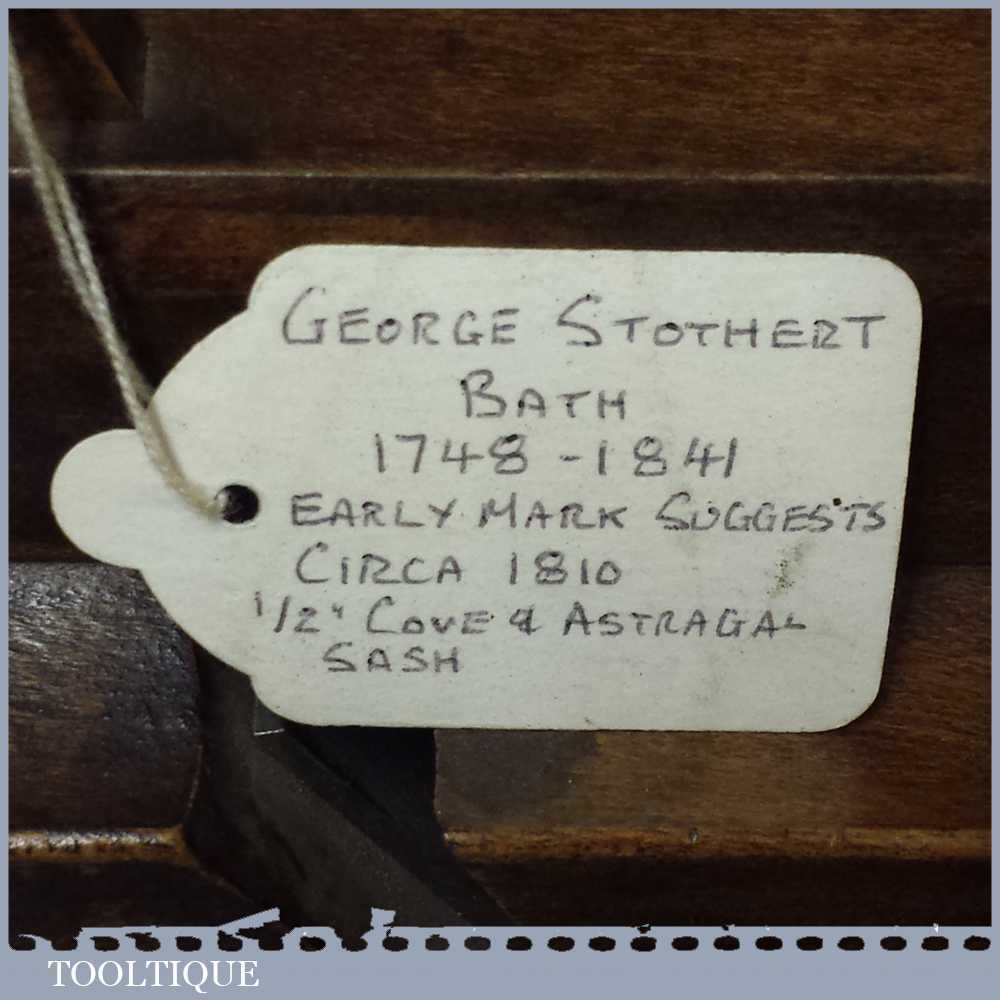 GEORGE STOTHERT
BATH
1748-1841
EARLY MARK SUGGESTS
CIRCA 1810
1/2" COVE & ASTRAGAL
SASH
TOOLTIQUE